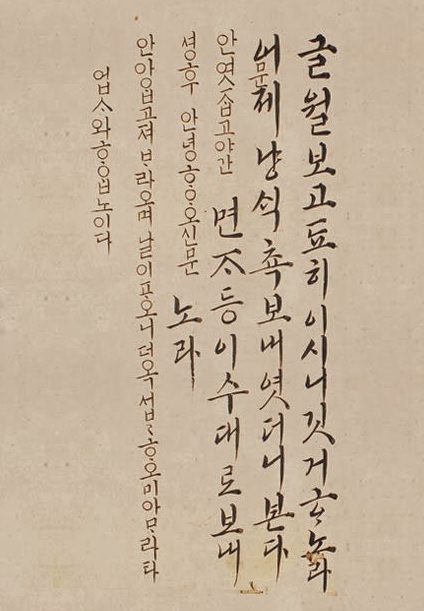 글월보고됴히이시니깃거ᄒᆞ노라
어제냥ᄉᆡᆨ쵹보내엿더니본다
면ᄌᆞ등이수대로보내
노라
문
안엿ᄌᆞᆸ고야간
셩후 안녕ᄒᆞᄋᆞ오신문
안아ᄋᆞᆸ고져ᄇᆞ라오며날이포오니더옥섭섭ᄒᆞ오미아ᄆᆞ라타
업ᄉᆞ와ᄒᆞᄋᆞᆸ노이다